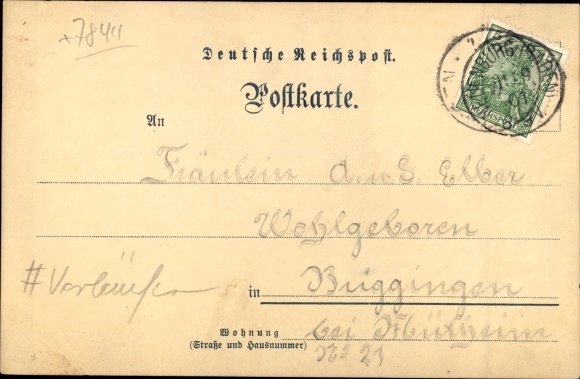 +7844
Deutsche Reichspost.
Postkarte.
An
Fräulein A. u. G. Elber
Wohlgeboren
in Buggingen
Wohnung
(Straße und Hausnummer)
bei Mülheim
No 21